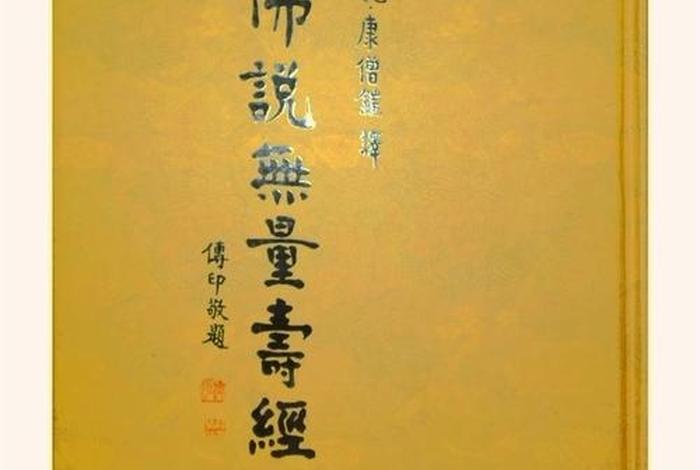 康僧鎧譯
佛說無量壽經
傳印敬題